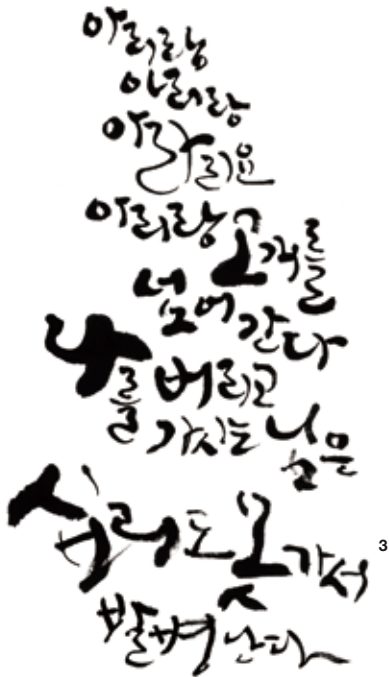 아리랑
아리랑
아라리요
아리랑 고개를
넘어 간다
나를 버리고
가시는 님은
십리도 못 가서
발병 난다
3